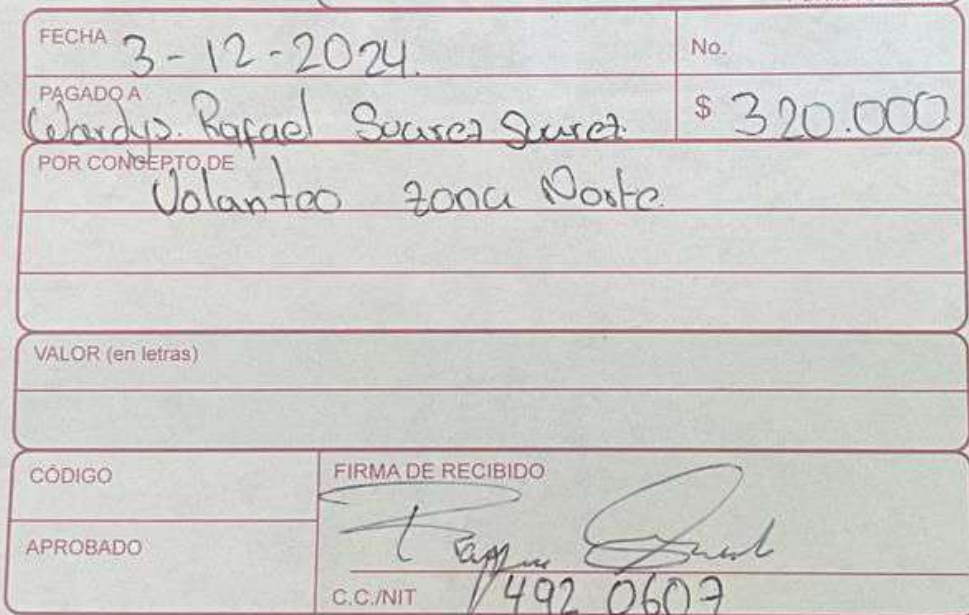 FECHA 3-12-2024.
No.
PAGADO A
Wardys. Rafael Suarez Suarez.
$ 320.000
POR CONCEPTO DE
Volanteo zona Norte.
VALOR (en letras)
CÓDIGO
FIRMA DE RECIBIDO
APROBADO
C.C./NIT 492 0607